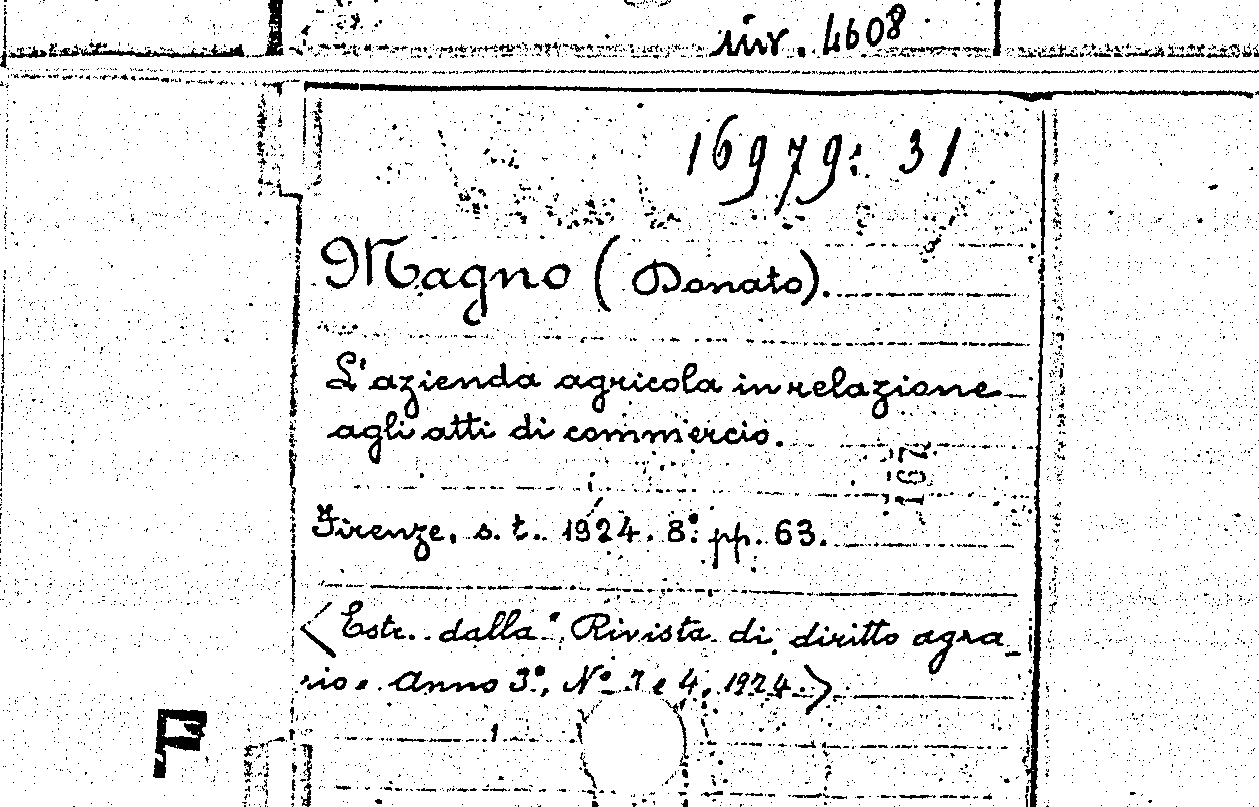 inv. 4608
16979: 31
Magno (Donato).
L'azienda agricola in relazione
agli atti di commercio.
167
Firenze, s. t.. 1924. 8º: pp. 63.
<Estr.. dalla " Rivista di diritto agra_
rio. Anno 3º, Nº 3 e 4, 1924.>
F